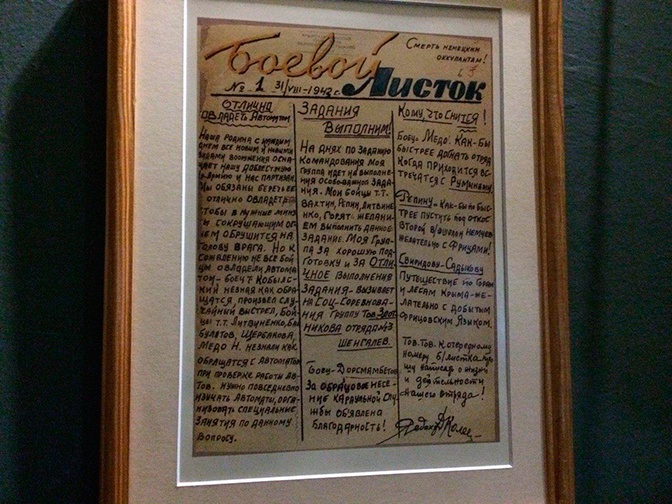 Смерть немецким
оккупантам!
Боевой
Листок
№ 1 31/VIII-1942 г.
Отлично
овладеть автоматом
Наша Родина с каждым
днем все новым и новыми
видами вооружения осна-
щает нашу доблестную
армию и нас партизан.
Мы обязаны беречь ее
отлично овладеть
чтобы в нужные мину-
ты сокрушающим ог-
нем обрушится на
голову врага. Но к
сожалению не все бой-
цы овладели автома-
том- боец т. Кобылс-
кий незная как обра-
щатся, произвел слу-
чайный выстрел, бой-
цы т.т. Литвиненко,
булатов, Щербакова
Медо Н. незнали как
обращатся с автоматом
при проверке работы ав-
тов. Нужно повседневно
изучать автоматы, орга-
низовать специальные
занятия по данному
вопросу.
Задания
выполним!
На днях по заданию
командования моя
группа идет на выполне-
ния особоважного зада-
ния. Мои бойцы т.т.
Вахтин, Репин, Литвине-
нко, горят желани-
ем выполнить данное
задание. Моя груп-
па за хорошую под-
готовку и за отли-
чное выполнения
задания- вызывает
на соц-соревнова-
ния группу тов.
никова отряда-
Шенгалев.
Бойцу-Дорсмамбетов
за образцовое несе-
ние караульной слу-
жбы об'явлена
благодарность!
Кому, что снится!
Бойцу. Медо. Как-бы
быстрее догнать отряд
когда приходится вс-
тречатся с румынами
Репину- как-бы по быс-
трее пустить под откос
второй эшелон немцев
нежелательно с фрицами!
Свиридову- Садыкову
путешествие по горам
и лесам Крыма- же-
лательно с добытым
фрицовским языком.
Тов. Тов. к очередному
номеру б/листка
написав о жизни
и деятельности
нашего отряда!
Редактор